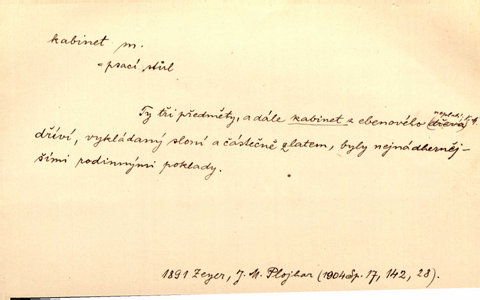 kabinet m.
= psací stůl
Ty tři předměty, a dále kabinet z ebenového (dřeva)
dříví, vykládaný sloní a částečně zlatem, byly nejnádherněj-
šími rodinnými poklady.
1891 Zeyer, J. M. Plojhar (1904 Sp. 17, 142, 28).